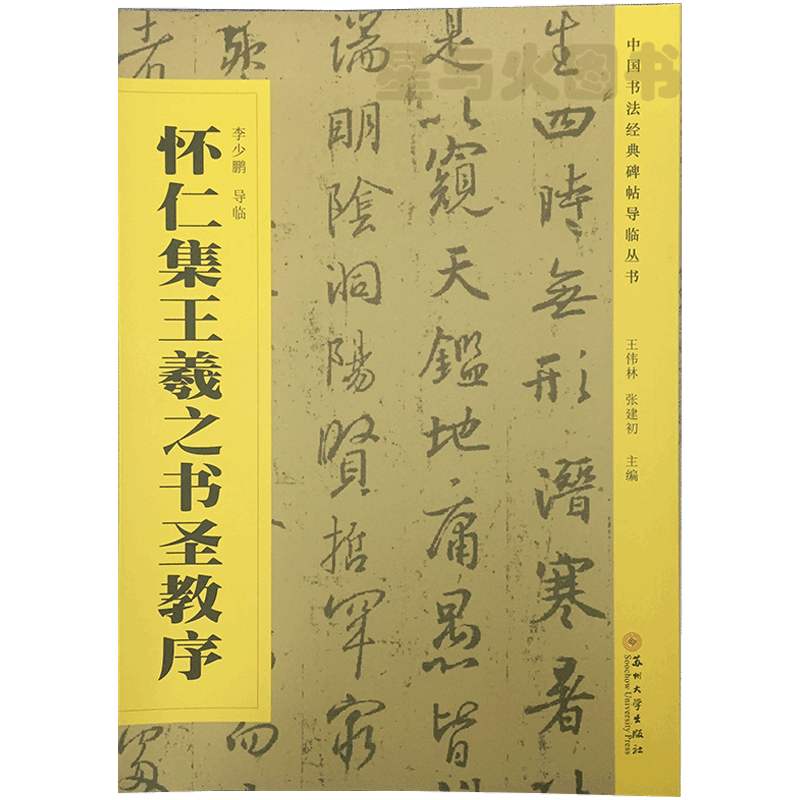 中国书法经典碑帖导临丛书
王伟林 张建初 主编
苏州大学出版社
Soochow University Press
星与火图书
生四時無形潛寒暑
是以窺天鑑地庸愚皆
端明陰洞陽賢哲罕窮
李少鹏 导临
怀仁集王羲之书圣教序